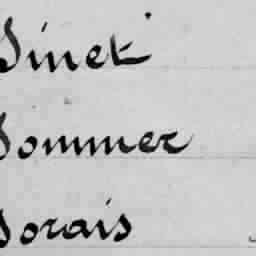 Sinet
Sommer
Sorais